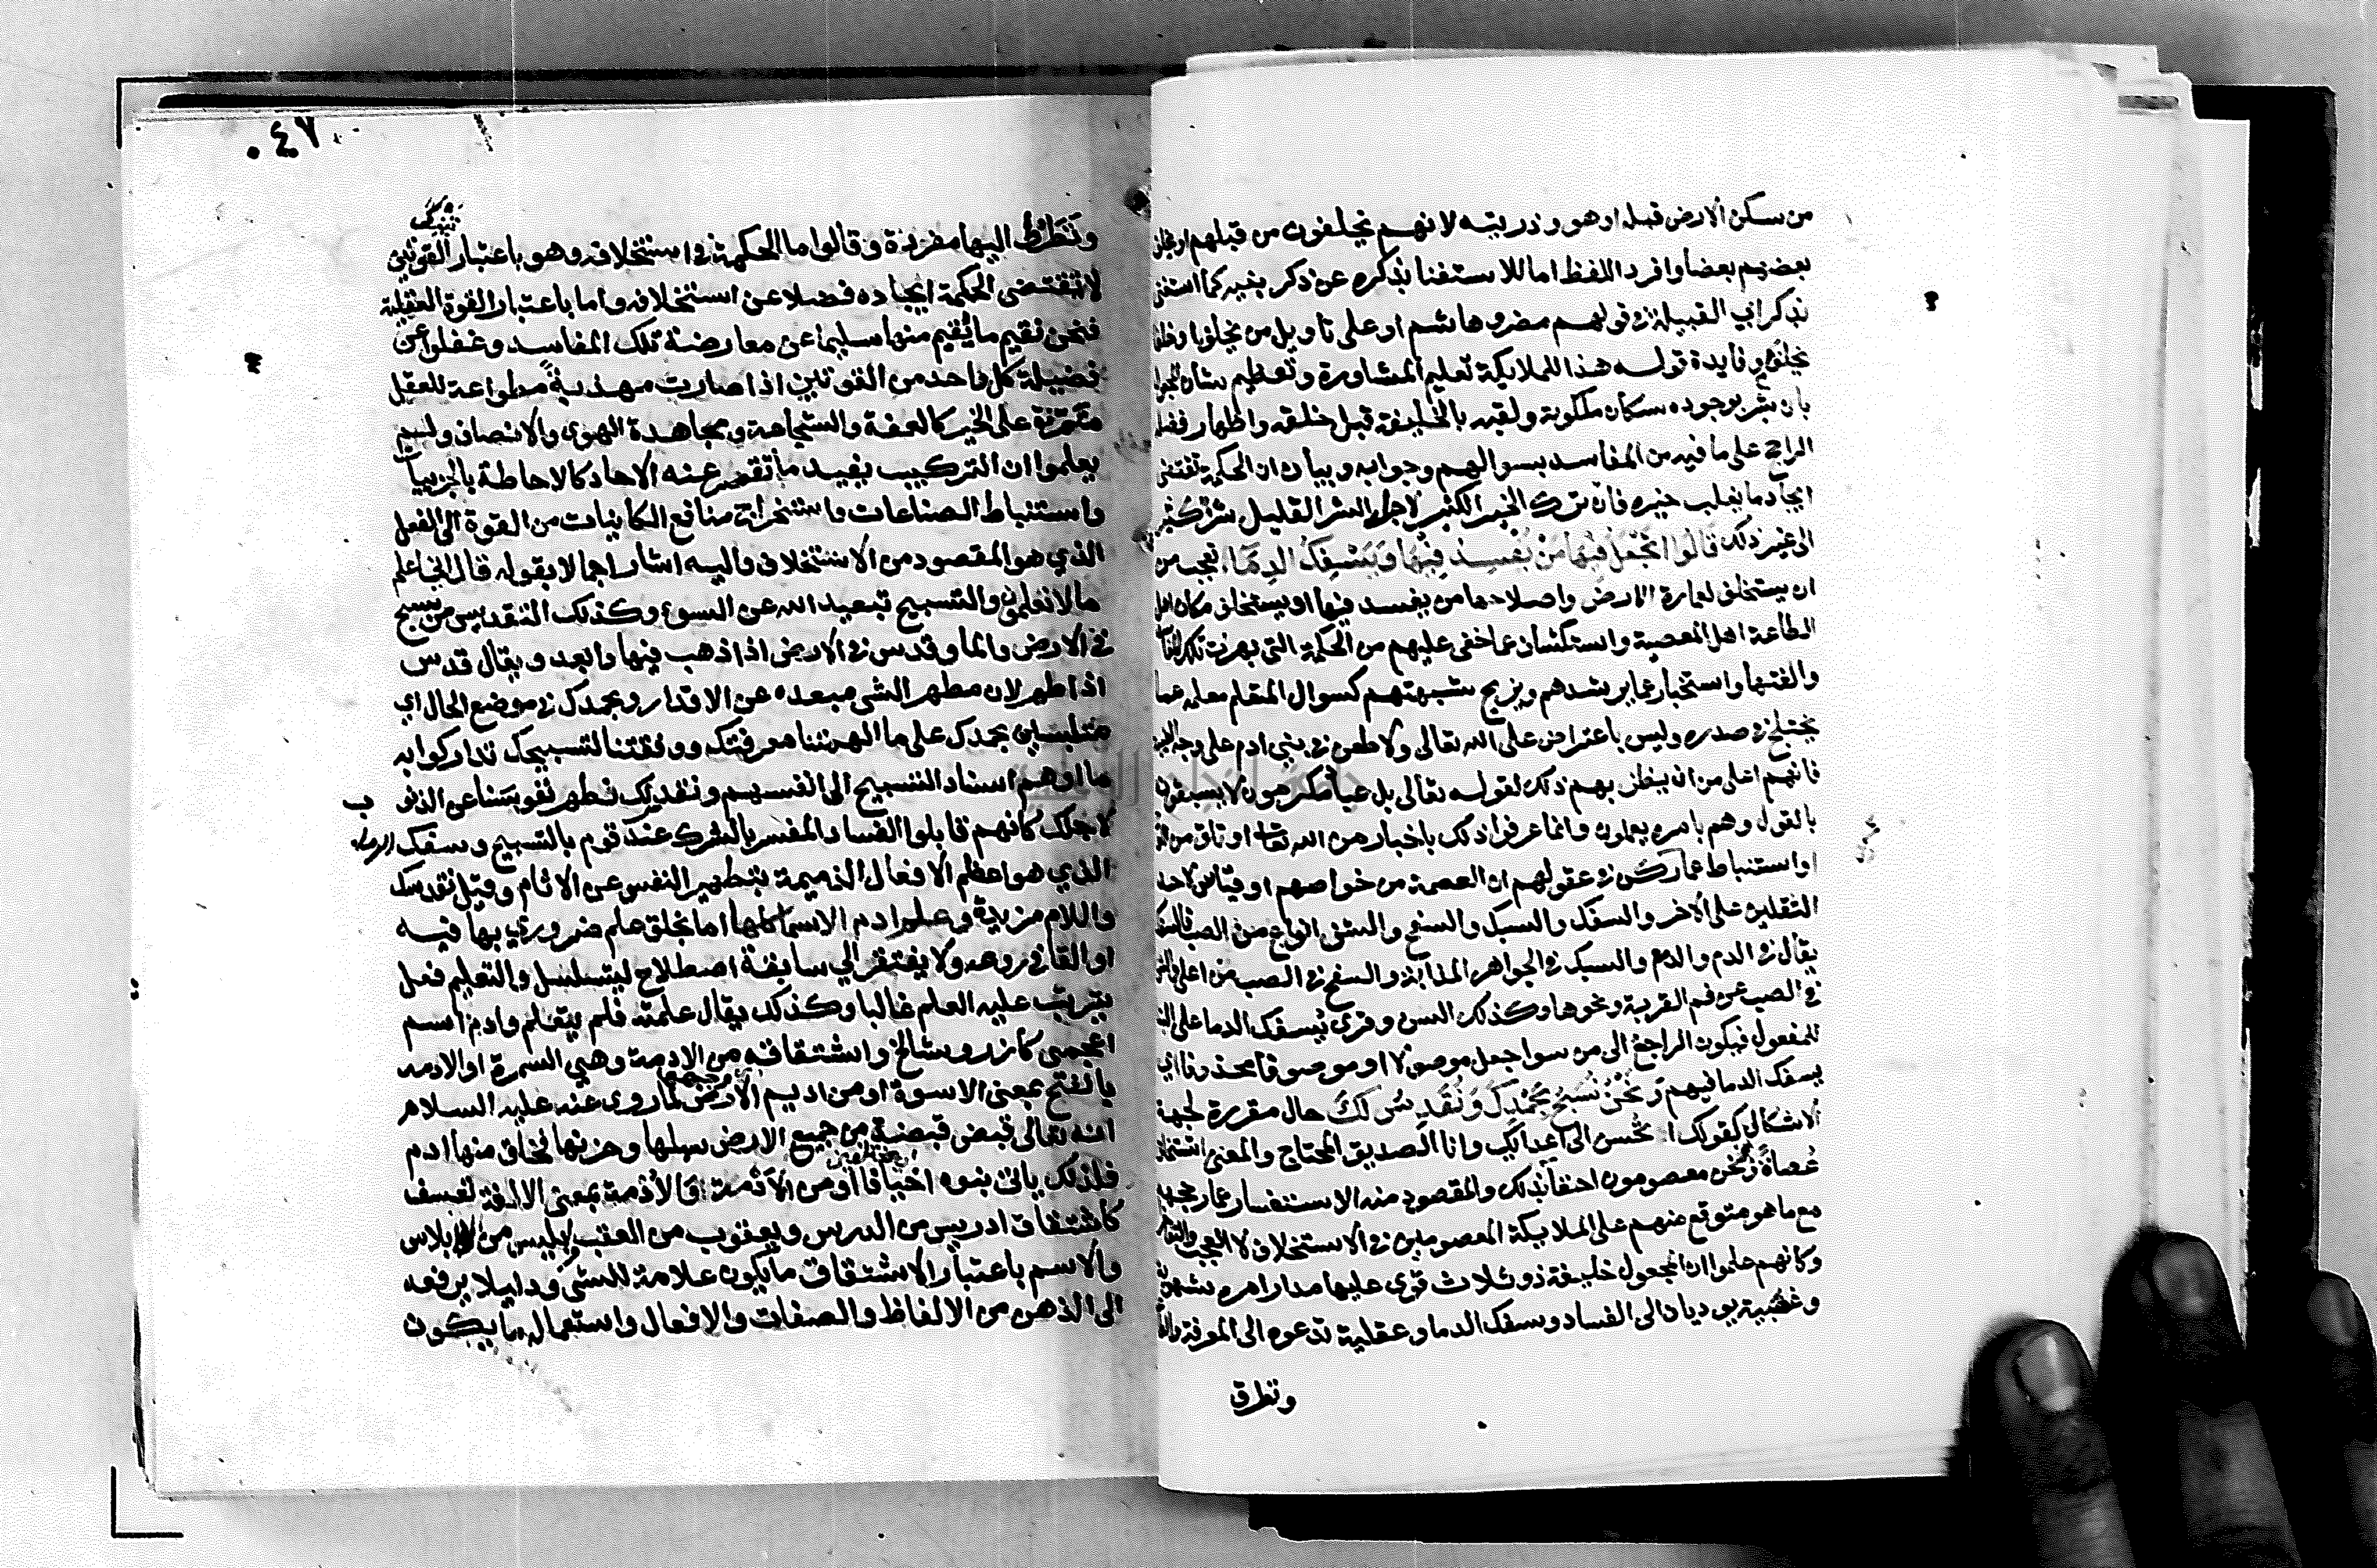 من سكن الارض قبله او هو وذريته لانهم يخلفون من قبلهم او يخلف
بعضهم بعضا وافرد اللفظ اما للاستغنا بذكره عن ذكر بنيه كما استغنى
بذكر ابي القبيلة في قولهم مضر وهاشم او على تاويل من يخلف او خلقا
يخلف وفايدة قوله هذا للملايكة تعليم المشاورة وتعظيم شان المجعول
بان بشر بوجوده سكان ملكوته ولقبه بالخليفة قبل خلقه واظهار فضله
الراجح على ما فيه من المفاسد بسوالهم وجوابه وبيان ان الحكمة تقتضي
ايجاد ما يغلب خيره فان ترك الخير الكثير لاجل الشر القليل شر كثير
الى غير ذلك قالوا اتجعل فيها من يفسد فيها ويسفك الدما تعجب من
ان يستخلف لعمارة الارض واصلاحها من يفسد فيها او يستخلف مكان اهل
الطاعة اهل المعصية واستكشاف عما خفي عليهم من الحكمة التي بهرت تلك المفاسد
والغتها واستخبار عما يرشدهم ويزيح شبهتهم كسوال المتعلم معلمه عما
يختلج في صدره وليس باعتراض على الله تعالى ولا طعن في بني ادم على وجه الغيبة
فانهم اعلى من ان يظن بهم ذلك لقوله تعالى بل عباد مكرمون لا يسبقونه
بالقول وهم بامره يعملون وانما عرفوا ذلك باخبار من الله تعالى او تلق من اللوح
او استنباط عما ركن في عقولهم ان العصمة من خواصهم او قياس لاحد
الثقلين على الاخر والسفك والسبك والسفح والشن انواع من الصب فالسفك
يقال في الدم والدمع والسبك في الجواهر المذابة والسفح في الصب من اعلى والشن
في الصب عن فم القربة ونحوها وكذلك السن وقرى يسفك الدما على البنا
للمفعول فيكون الراجع الى من سوا جعل موصولا او موصوفا محذوفا اي
يسفك الدما فيهم ونحن نسبح بحمدك ونقدس لك حال مقررة لجهة
الاشكال كقولك اتحسن الى اعدايك وانا الصديق المحتاج والمعنى اتستخلف
عصاة ونحن معصومون احقا بذلك والمقصود منه الاستفسار عما رجحهم
مع ما هو متوقع منهم على الملايكة المعصومين في الاستخلاف لا العجب والتفاخر
وكانهم علموا ان المجعول خليفة ذو ثلاث قوى عليها مدار امره شهوية
وغضبية يوديان الى الفساد وسفك الدما وعقلية تدعوه الى المعرفة والطاعة
ونظر
٠٤٧
ونظروا اليها مفردة وقالوا ما الحكمة في استخلافه وهو باعتبار القوتين
تينك
لا تقتضي الحكمة ايجاده فضلا عن استخلافه واما باعتبار القوة العقلية
فنحن نقيم ما يقيم منها سليما عن معارضة تلك المفاسد وغفلوا عن
فضيلة كل واحد من القوتين اذا صارت مهذبة مطواعة للعقل
متمرنة على الخير كالعفة والشجاعة ومجاهدة الهوى والانصاف ولم
يعلموا ان التركيب يفيد ما تقصر عنه الاحاد كالاحاطة بالجزييات
واستنباط الصناعات واستخراج منافع الكاينات من القوة الى الفعل
الذي هو المقصود من الاستخلاف واليه اشار اجمالا بقوله قال اني اعلم
ما لا تعلمون والتسبيح تبعيد الله عن السوء وكذلك التقديس من سبح
في الارض والما وقدس في الارض اذا ذهب فيها وابعد ويقال قدس
اذا طهر لان مطهر الشي مبعده عن الاقذار وبحمدك في موضع الحال اي
متلبسين بحمدك على ما الهمتنا معرفتك ووفقتنا لتسبيحك تداركوا به
ما اوهم اسناد التسبيح الى انفسهم ونقدس لك نطهر نفوسنا عن الذنوب
لاجلك كانهم قابلوا الفساد المفسر بالشرك عند قوم بالتسبيح وسفك الدماء
الذي هو اعظم الافعال الذميمة بتطهير النفس عن الاثام وقيل نقدسك
واللام مزيدة وعلم ادم الاسما كلها اما بخلق علم ضروري بها فيه
او القا في روعه ولا يفتقر الى سابقة اصطلاح ليتسلسل والتعليم فعل
يترتب عليه العلم غالبا وكذلك يقال علمته فلم يتعلم وادم اسم
اعجمي كازر وشالخ واشتقاقه من الادمة وهي السمرة او الادمة
بالفتح بمعنى الاسوة او من اديم الارض لما روي عنه عليه السلام
انه تعالى قبض قبضة من جميع الارض سهلها وحزنها فخلق منها ادم
فلذلك ياتي بنوه اخيافا او من الادمة او الادمة بمعنى الالفة تعسف
كاشتقاق ادريس من الدرس ويعقوب من العقب وابليس من الابلاس
والاسم باعتبار الاشتقاق ما يكون علامة للشي ودليلا يرفعه
الى الذهن من الالفاظ والصفات والافعال واستعماله ما يكون